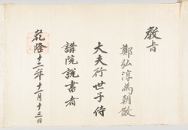 教旨
鄭弘淳爲朝散
大夫行世子侍
講院說書者
乾隆十二年十一月十三日